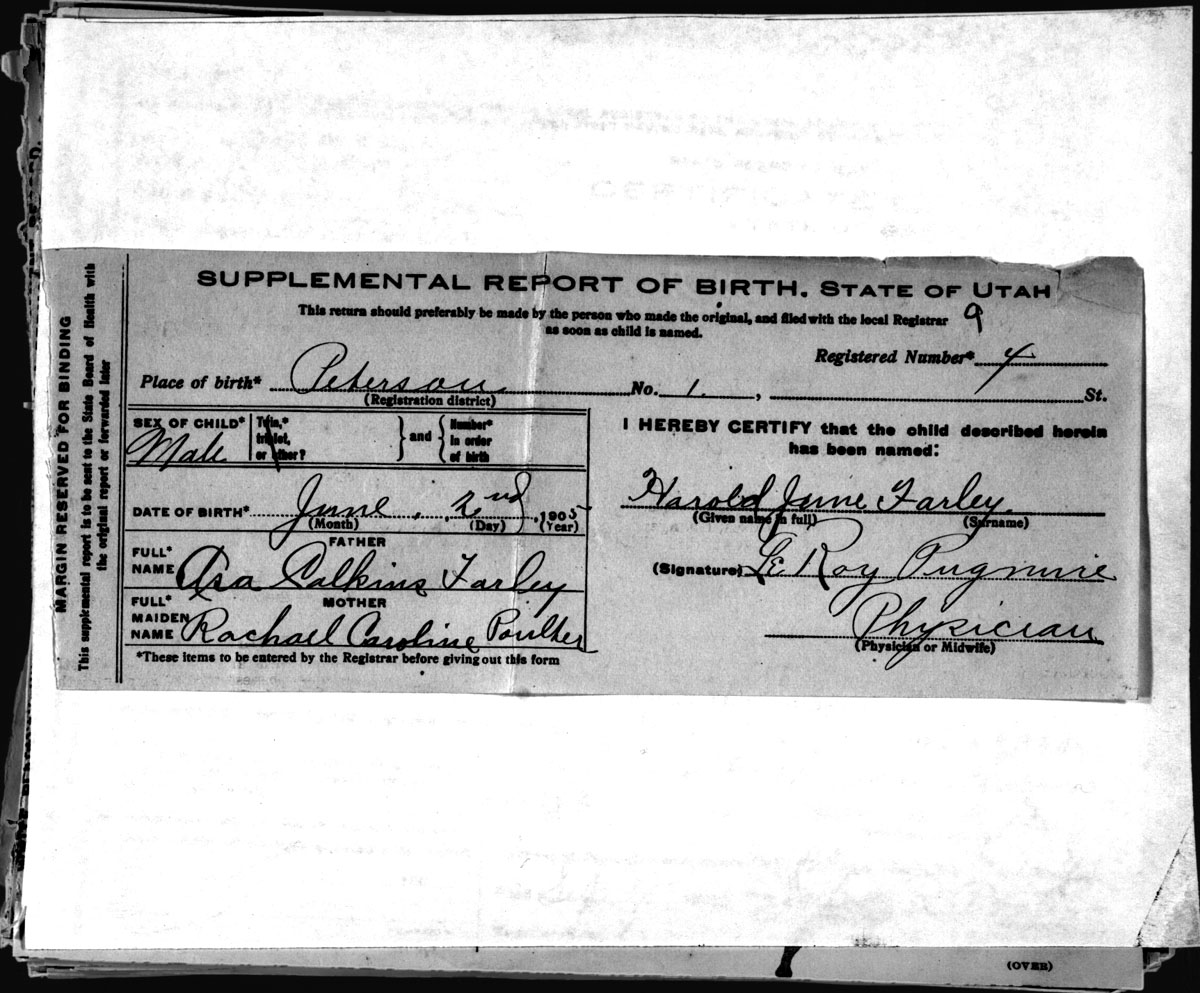 SUPPLEMENTAL REPORT OF BIRTH. STATE OF UTAH
This return should preferably be made by the person who made the original, and filed with the local Registrar 9
as soon as child is named.
Registered Number* 4
Place of birth* Peterson No. 1. , St.
(Registration district)
SEX OF CHILD* Male
Twin,* triplet, or other? } and { Number* in order of birth
DATE OF BIRTH* June, 2nd, 1905
(Month) (Day) (Year)
FATHER
FULL* NAME Asa Calkins Farley
MOTHER
FULL* MAIDEN NAME Rachael Caroline Poulter
*These items to be entered by the Registrar before giving out this form
I HEREBY CERTIFY that the child described herein
has been named:
Harold June Farley.
(Given name in full) (Surname)
(Signature) Le Roy Pugmire
Physician
(Physician or Midwife)
MARGIN RESERVED FOR BINDING
This supplemental report is to be sent to the State Board of Health with
the original report or forwarded later
(OVER)